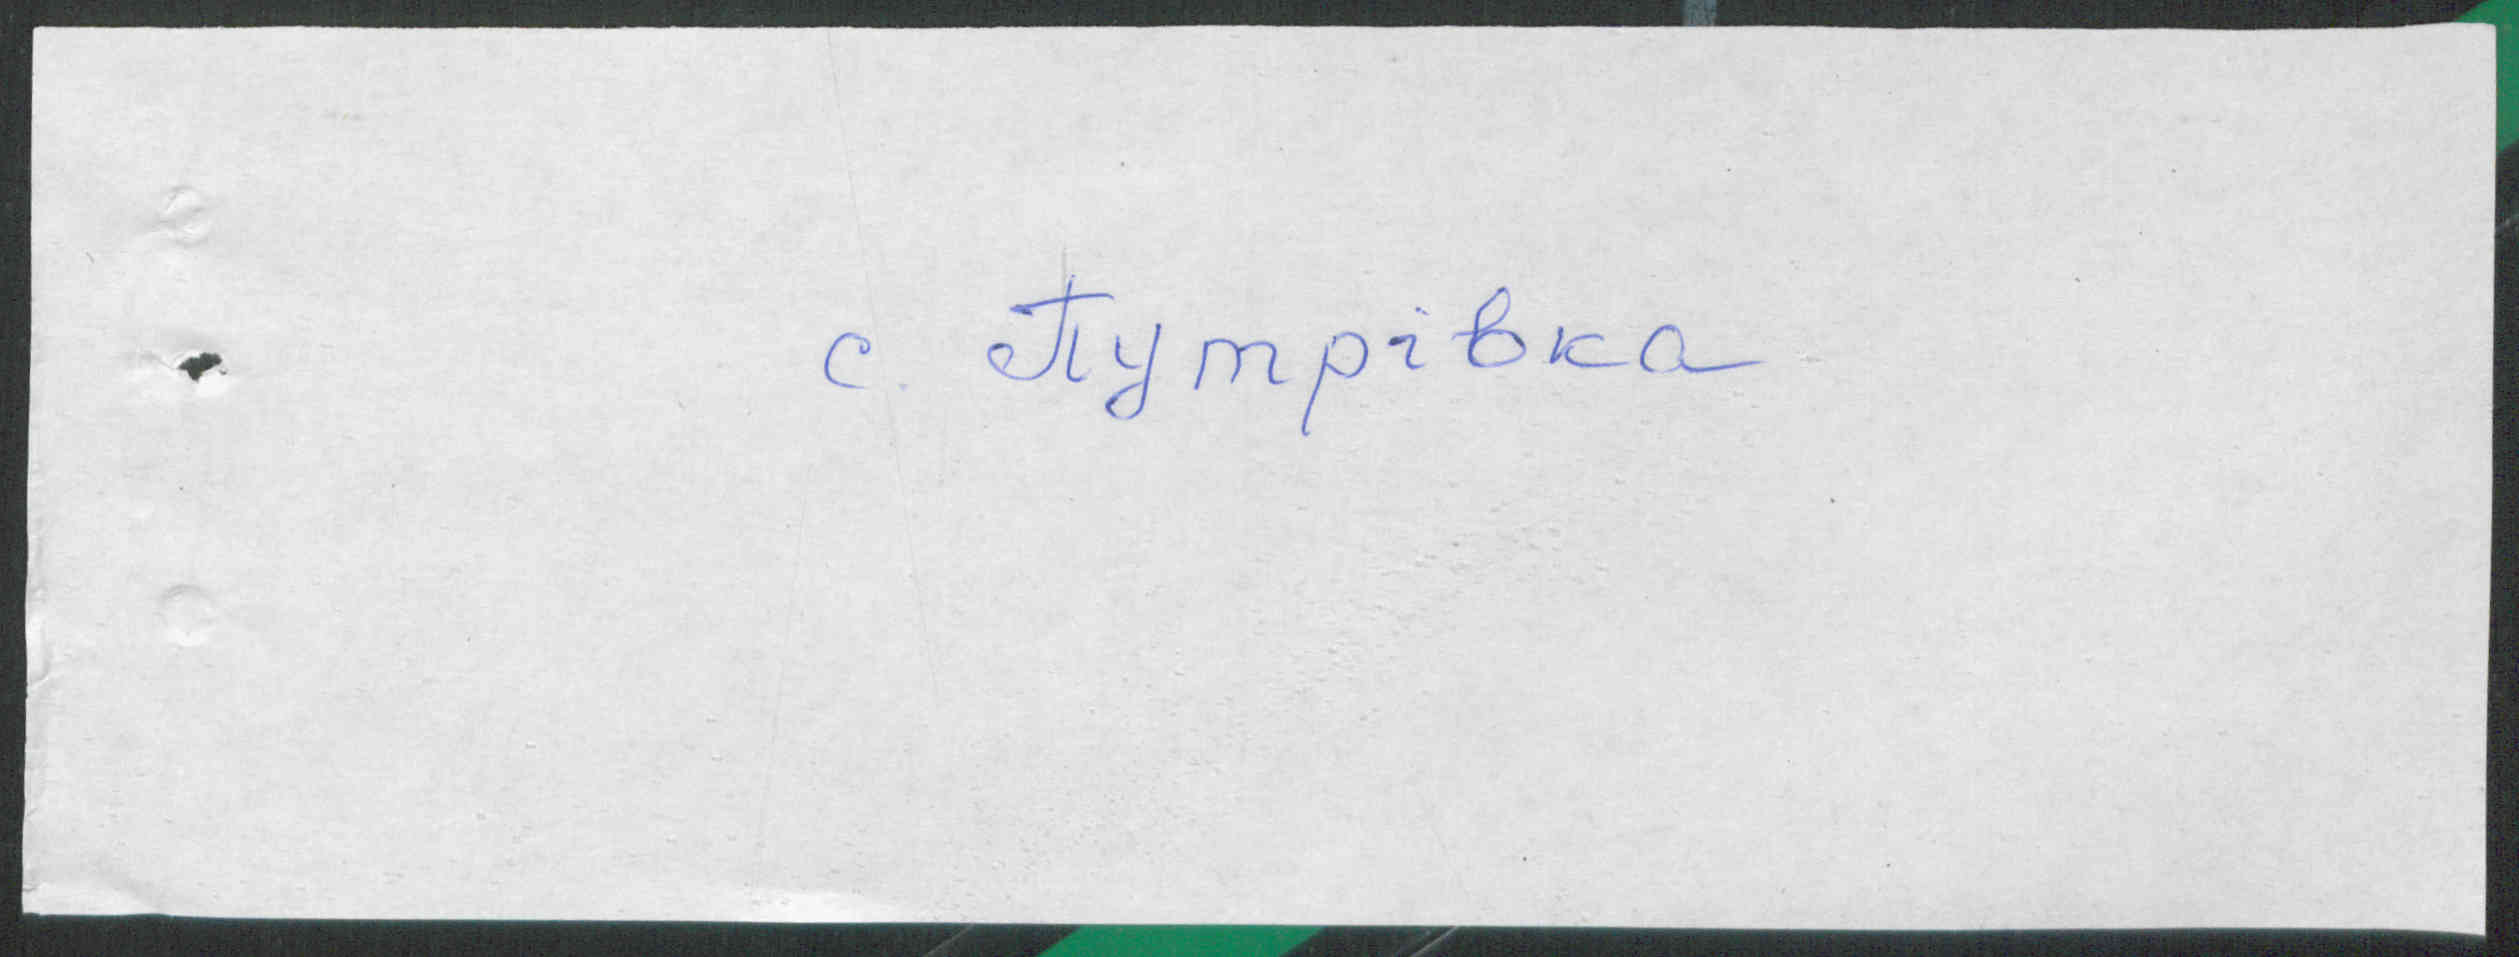 с. Путрівка